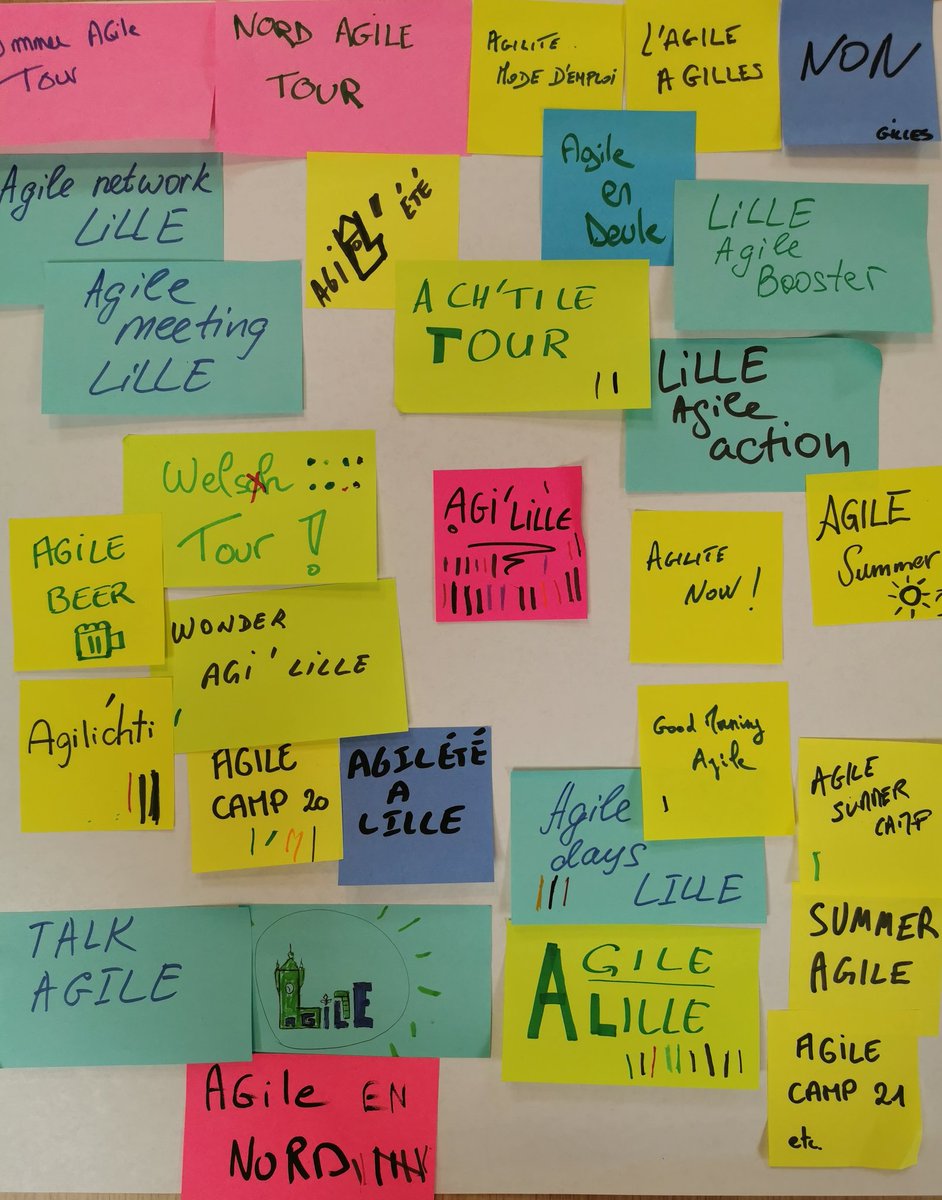 ummer Agile
Tour
NORD AGILE
TOUR
AGILITE.
MODE D'EMPLOI
L'AGILE
A GILLES
NON
GILLES
Agile network
LiLLE
AGI
ÉTÉ
Agile
en
Deule
LiLLE
Agile
Booster
Agile
meeting
LiLLE
A CH'TILE
TOUR
LiLLE
Agile
action
Welsh
Tour !
AGi'LiLLE
AGILITE
NOW !
AGILE
Summer
AGiLE
BEER
WONDER
AGI'LILLE
Agilichti
AGILE
CAMP 20
AGILÉTÉ
A
LILLE
Good Morning
Agile
AGILE
SUMMER
CAMP
Agile
days
LILLE
TALK
AGILE
AGiLE
AGILE
A LILLE
SUMMER
AGILE
AGILE EN
NORD
AGILE
CAMP 21
etc.